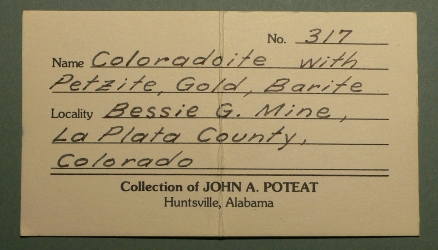 No. 317
Name Coloradoite with
Petzite, Gold, Barite
Locality Bessie G. Mine,
La Plata County,
Colorado
Collection of JOHN A. POTEAT
Huntsville, Alabama